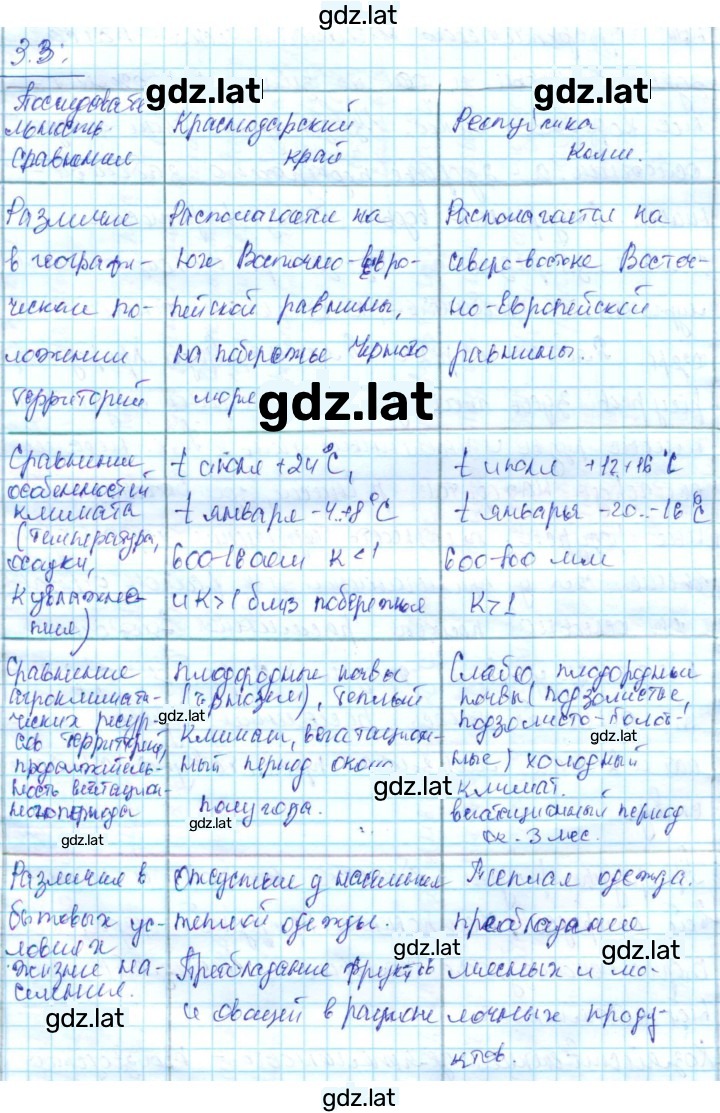 gdz.lat
3.3:
gdz.lat gdz.lat
Последовате
льность
сравнения
Краснодарский
край
Республика
Коми.
Различие
в географи-
ческом по-
ложении
территорий
Располагается на
юге Восточно-Евро-
пейской равнины,
на побережье Черного
моря
Располагается на
северо-востоке Восточ-
но-Европейской
равнины.
gdz.lat
Сравнение
особенностей
климата
(температура,
осадки,
К увлажне-
ния)
t июля +24°C,
t января -4..+8°C
К<1
и К>1 близ побережья
t июля +12+16°C
t января -20..-16°C
600-800 мм
К>1
Сравнение
агроклимати-
ческих ресур-
сов территорий,
продолжитель-
ность вегетацион-
ного периода
gdz.lat
плодородные почвы
(чернозем), теплый
gdz.lat
климат, вегетацион-
ный период около
полугода.
gdz.lat
Слабо плодородные
почвы (подзолистые,
подзолисто-болот-
gdz.lat
ные) холодный
gdz.lat
климат.
вегетационный период
ок. 3 мес.
Различия в
бытовых ус-
ловиях
жизни на-
селения.
gdz.lat
Отсутствие у населения
теплой одежды.
Преобладание фруктов
и овощей в рационе
Теплая одежда.
преобладание
gdz.lat gdz.lat
мясных и мо-
лочных проду-
ктов.
gdz.lat
gdz.lat